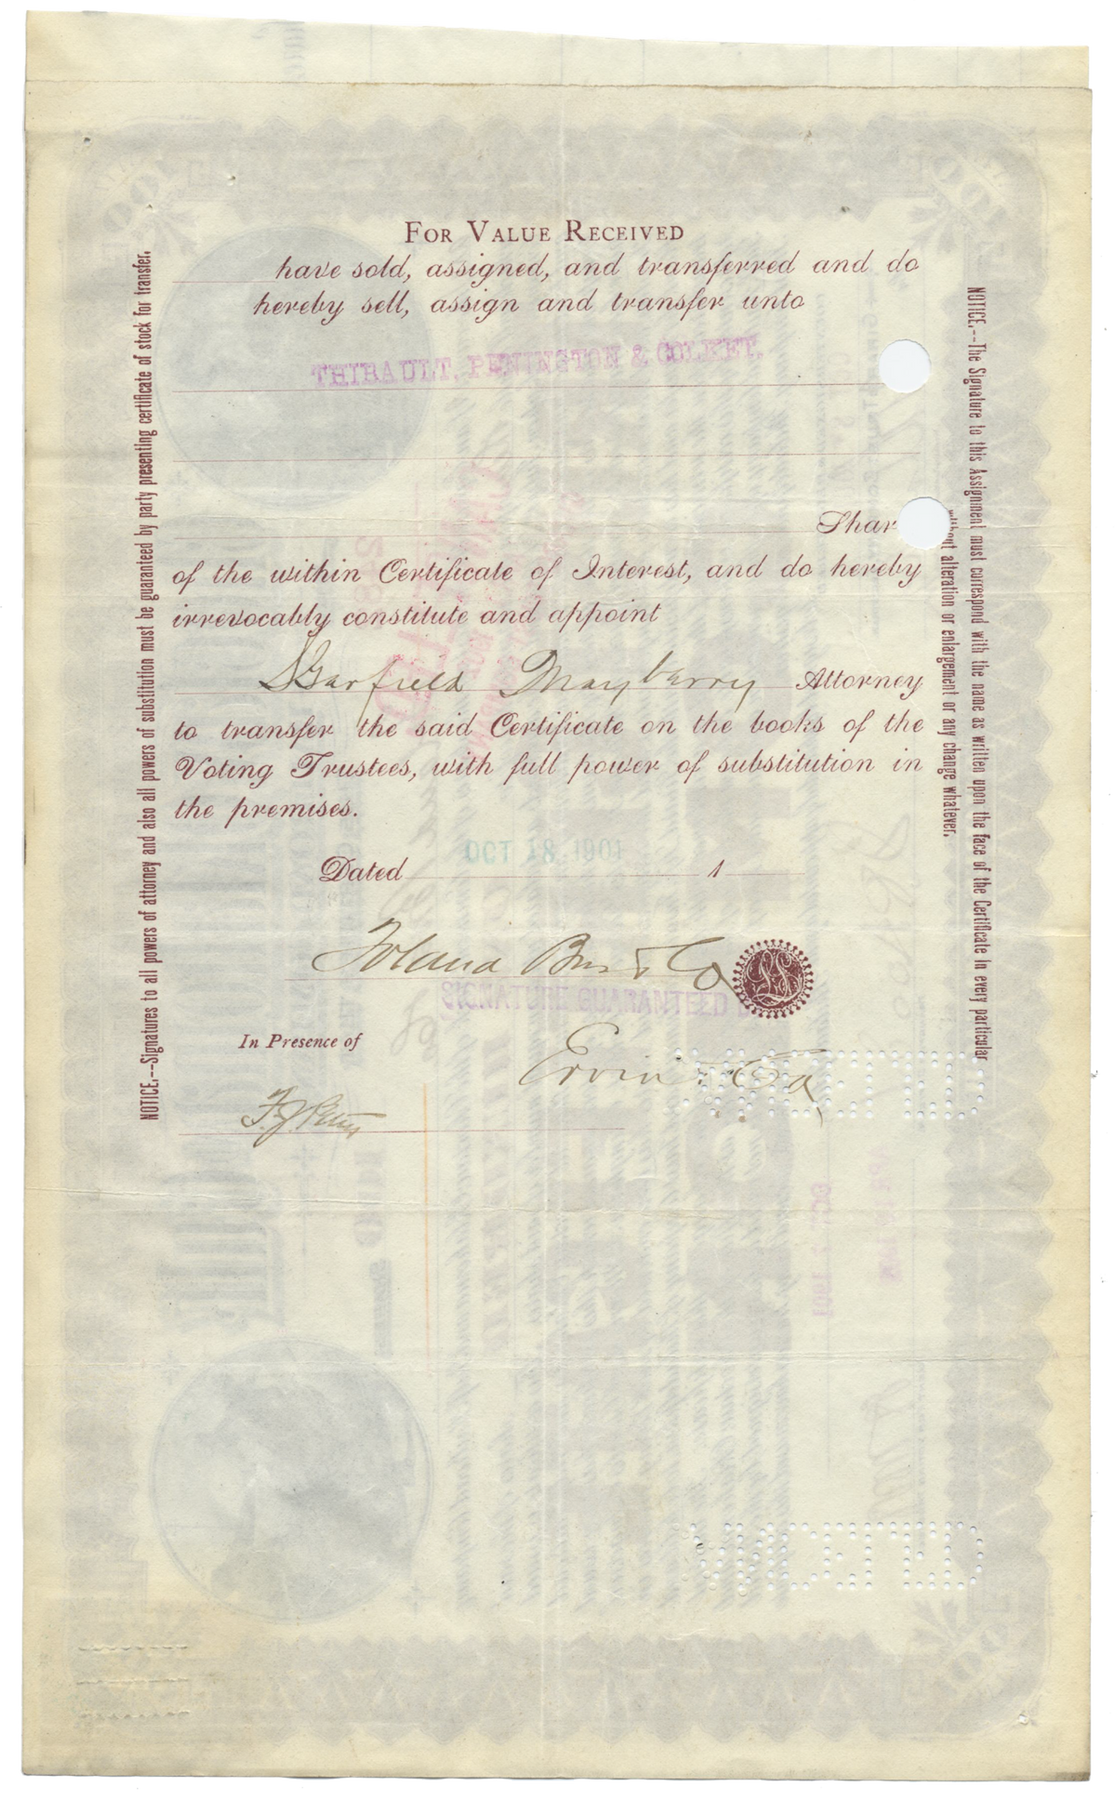 FOR VALUE RECEIVED
have sold, assigned, and transferred and do
hereby sell, assign and transfer unto
THIBAULT, PENINGTON & COLKET.
Shar
of the within Certificate of Interest, and do hereby
irrevocably constitute and appoint
S Garfield Mayberry Attorney
to transfer the said Certificate on the books of the
Voting Trustees, with full power of substitution in
the premises.
Dated OCT 18 1901 1
Toland Bros & Co
SIGNATURE GUARANTEED
In Presence of
Ervin & Co
NOTICE.--Signatures to all powers of attorney and also all powers of substitution must be guaranteed by party presenting certificate of stock for transfer.
NOTICE.--The Signature to this Assignment must correspond with the name as written upon the face of the Certificate in every particular
without alteration or enlargement or any change whatever.